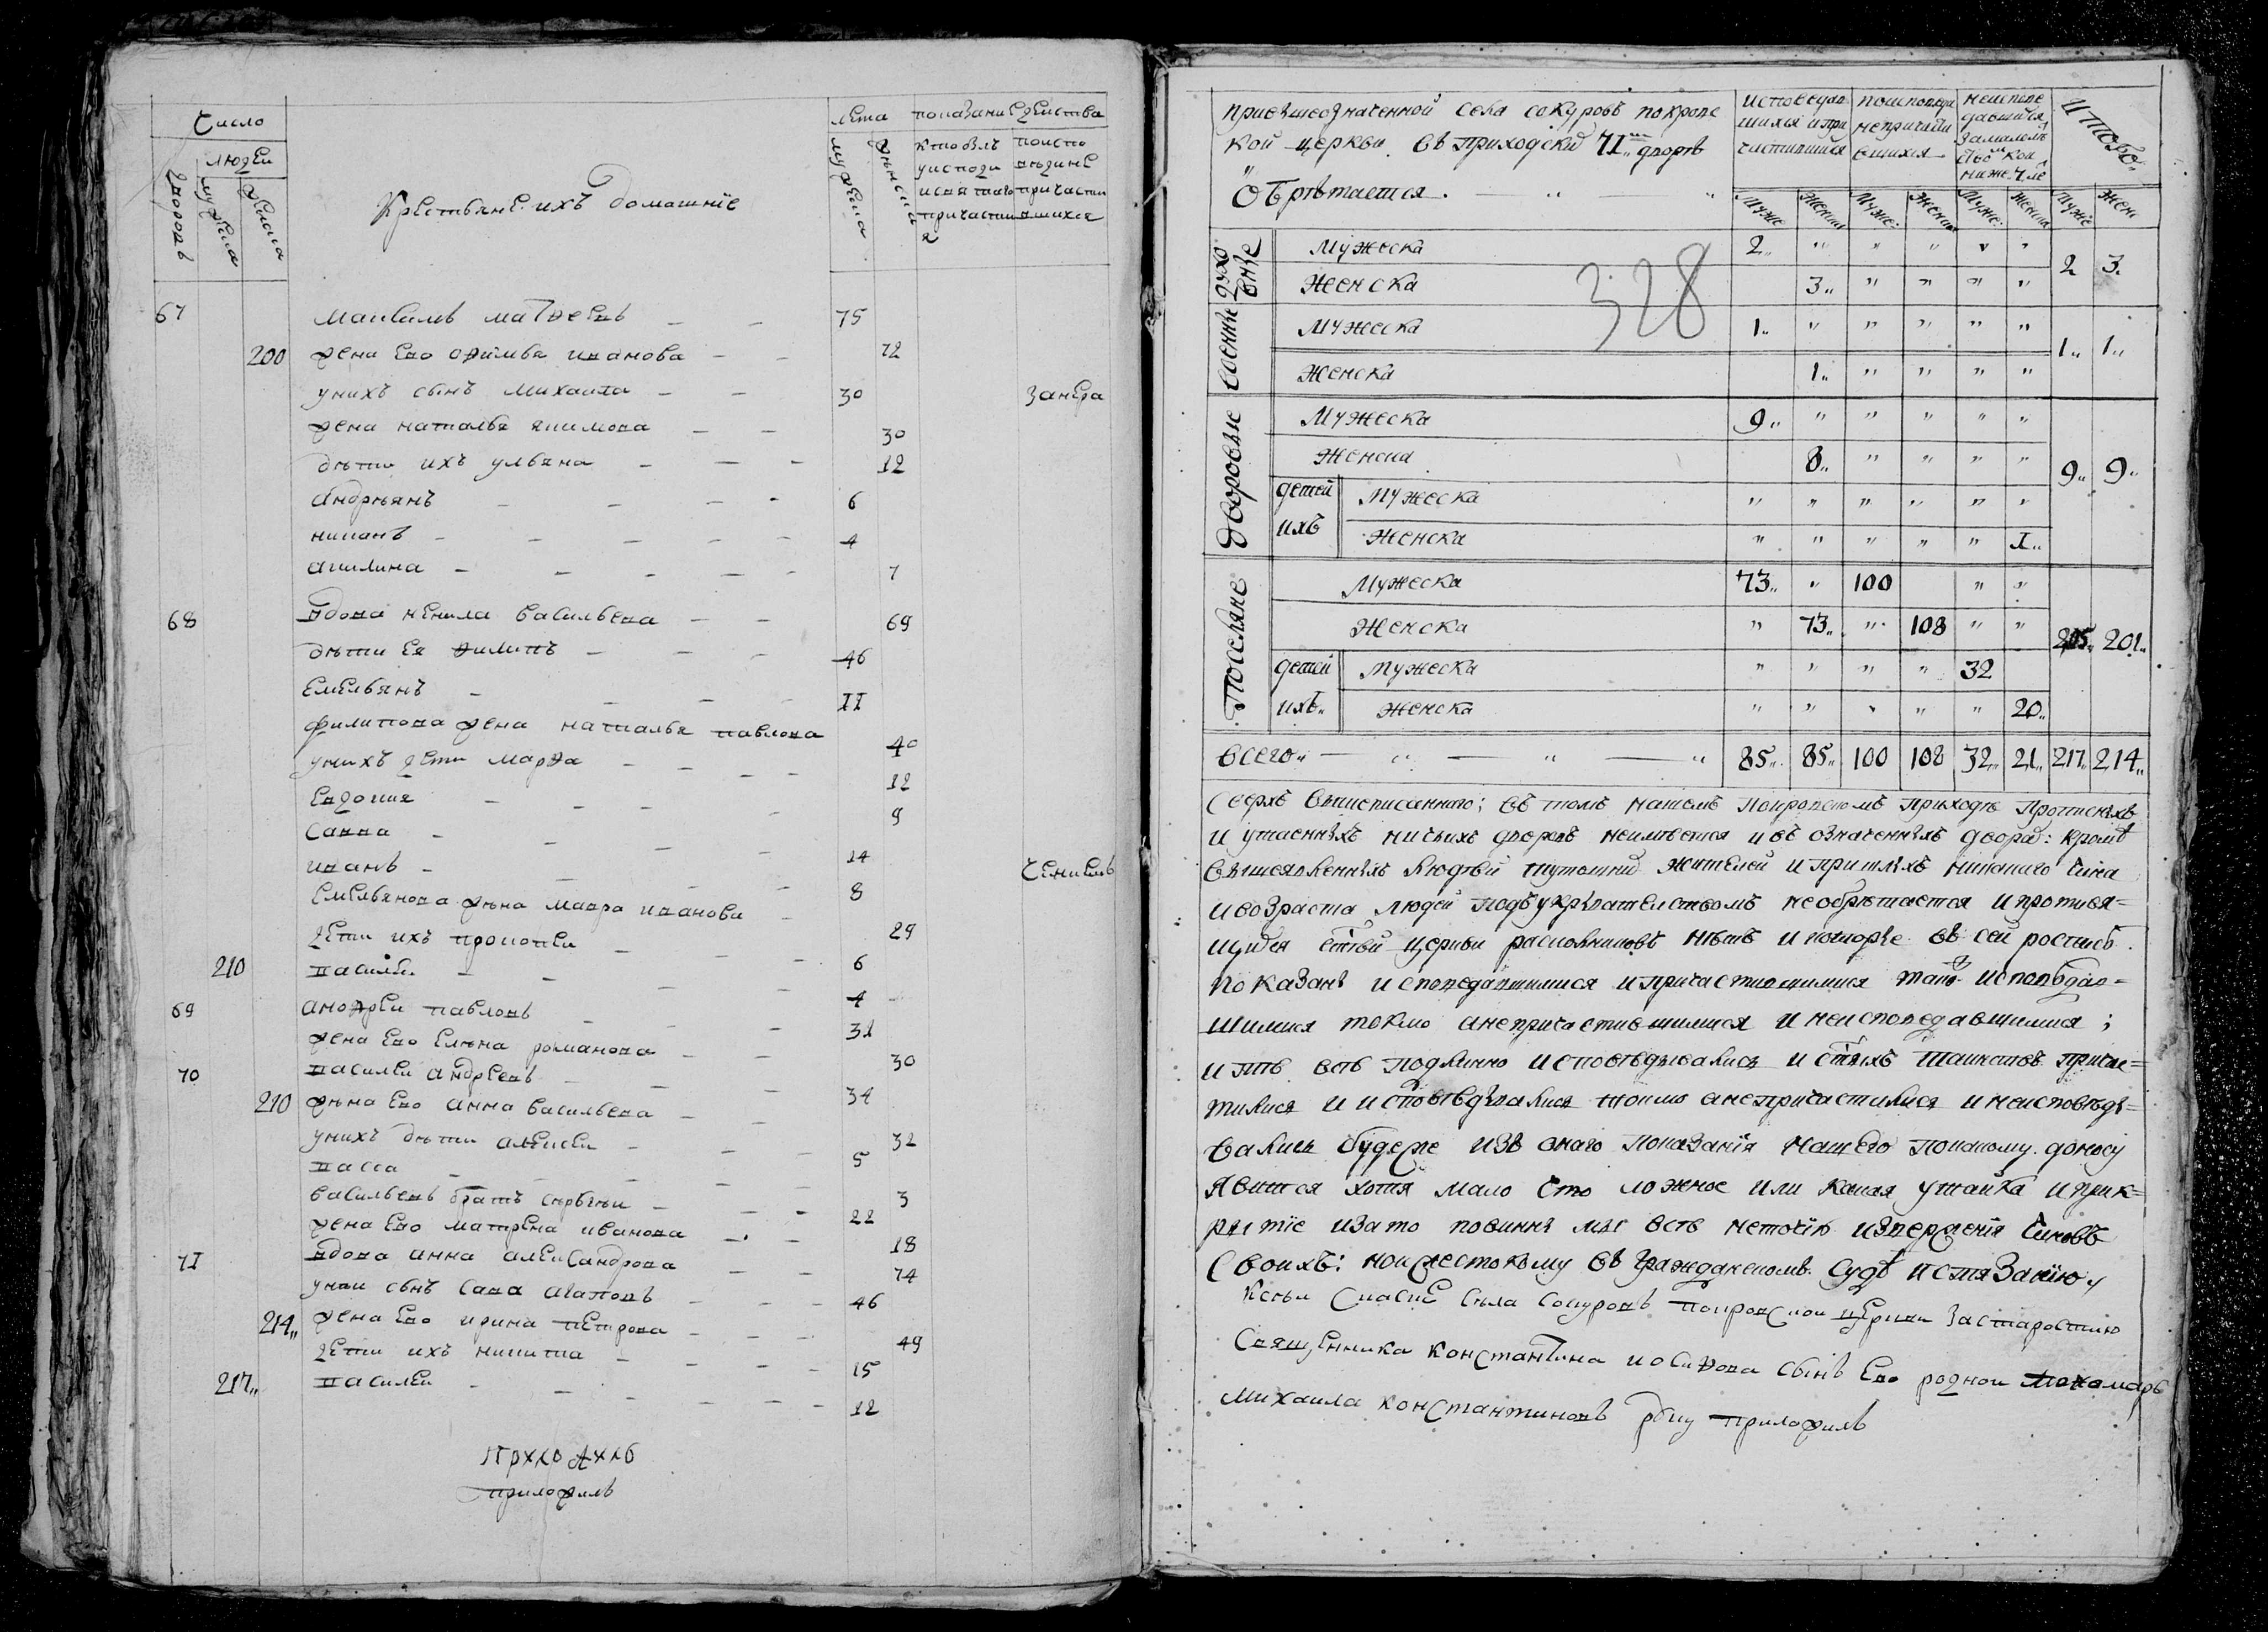 Число
людеи
дворовъ
мужеска
женска
Крестьяне ихъ домашніе
лета
мужеска
женска
показание действа
кто былъ
у исповди
и свя таго
причастия
поиспо
ведине
причасти
вшихся
67
Максимъ матвеевъ 75
200 жена ево офимья иванова 72
унихъ сынъ михаила 30
жена наталья якимова 30
дети ихъ ульяна 12
андреянъ 6
4
акилина 7
68 вдова ненила васильева 69
дети ея филипъ 46
емельянъ II
филипова жена наталья павлова 40
унихъ дети марфа 12
евдокия 9
савва 14
иванъ 8
емельянова жена мавра иванова 29
дети ихъ прокопеи 6
210 василеи 4
69 андреи павловъ 31
жена ево елена романова 30
70 василеи андреевъ 34
210 жена ево анна васильева 32
унихъ дети алексеи 5
васса 3
васильевъ братъ 22
жена ево матрена иванова 18
71 вдова анна александрова 74
унеи сынъ сава агаповъ 46
214 жена ево ирина петрова 49
дети ихъ никита 15
217 василеи 12
приложилъ
привышеозначенной села сокуровъ покровс
кой церкви въ приходскихъ 71 дворе
Обретается
исповедав
шихся и при
частившихся
поисповеда
непричасти
вшихся
неиспове
давшихся
замалолетс
Итого
Муже Женск Муже Женск Муже Женска Муже Жен
328
духовные
Мужеска 2
Женска 3
2 3
военные
Мужеска 1
Женска 1
1 1
дворовые
Мужеска 9
Женска 8
детей ихъ
Мужеска
Женска I
9 9
Поселяне
Мужеска 73 100
Женска 73 108
детей ихъ
Мужеска 32
Женска 20
205 201
всего 85 85 100 108 32 21 217 214
Сверхъ вышеписаннаго въ томъ нашемъ покровскомъ приходе прописныхъ
и утаенныхъ ничьихъ дворовъ неимеется и въ означенныхъ двора: кроме
вышеявленныхъ людей тутошнихъ жителей и пришлыхъ никакаго чина
и возраста людей подъ укрывательствомъ необретается и противя=
щихся стой церкви раскольниковъ нетъ и которые въ сей росписе
показаны исповедавшимися и причастившимися тако исповедав=
шимися токмо анепричастившимися и неисповедавшимися ;
и те есть подлинно исповедывались и стыхъ таинствъ прича=
тились и исповедывались токмо анепричастились и неисповеды=
вались будеже изъ онаго показания нашего покакому доносу
явится хотя мало что ложное или какая утайка и прик=
рытие и зато повинны мы есть неточию извержения чиновъ
Своихъ: но и жестокому въ гражданскомъ суде истязанию
К сеи села сокуровъ покровскои церкви за старостию
Священника константина иосифова сынъ ево роднои пономарь
михаила константиновъ руку приложилъ